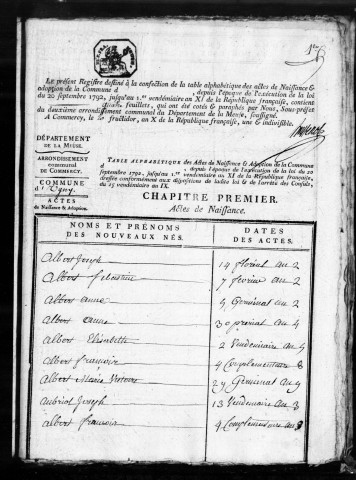 Le présent Registre destiné à la confection de la table alphabétique des actes de Naissance &
adoption de la Commune d , depuis l'époque de l'exécution de la loi
du 20 septembre 1792, jusqu'au 1.er vendémiaire an XI de la République française, contient
feuillets, qui ont été cotés & paraphés par Nous, Sous-préfet
du deuxième arrondissement communal du Département de la Meuse, soussigné.
A Commercy, le fructidor, an X de la République française, une & indivisible.
DÉPARTEMENT
DE LA MEUSE.
ARRONDISSEMENT
communal
DE COMMERCY.
COMMUNE
ACTES
de Naissance & Adoption.
TABLE ALPHABÉTIQUE des Actes de Naissance & Adoption de la Commune
, depuis l'époque de l'exécution de la loi du 20
septembre 1792, jusqu'au 1.er vendémiaire an XI de la République française,
dressée conformément aux dispositions de ladite loi & de l'arrêté des Consuls,
du 25 vendémiaire an IX.
CHAPITRE PREMIER.
Actes de Naissance.
NOMS ET PRÉNOMS
DES NOUVEAUX NÉS.
DATES
DES ACTES.
Albert Joseph 14 floréal an 2
Albert Sebastien 7 an 2
Albert anne 9 Germinal an 2
Albert anne 30 prairial an 4
Albert Elisabette 2 Vendemiaire an 5
Albert francois 4 Complementaire 8
Albert Marie 27 Germinal an 9
aubriot Joseph 13 Vendemiaire an 3
albert francois 4 Complementaire an 8